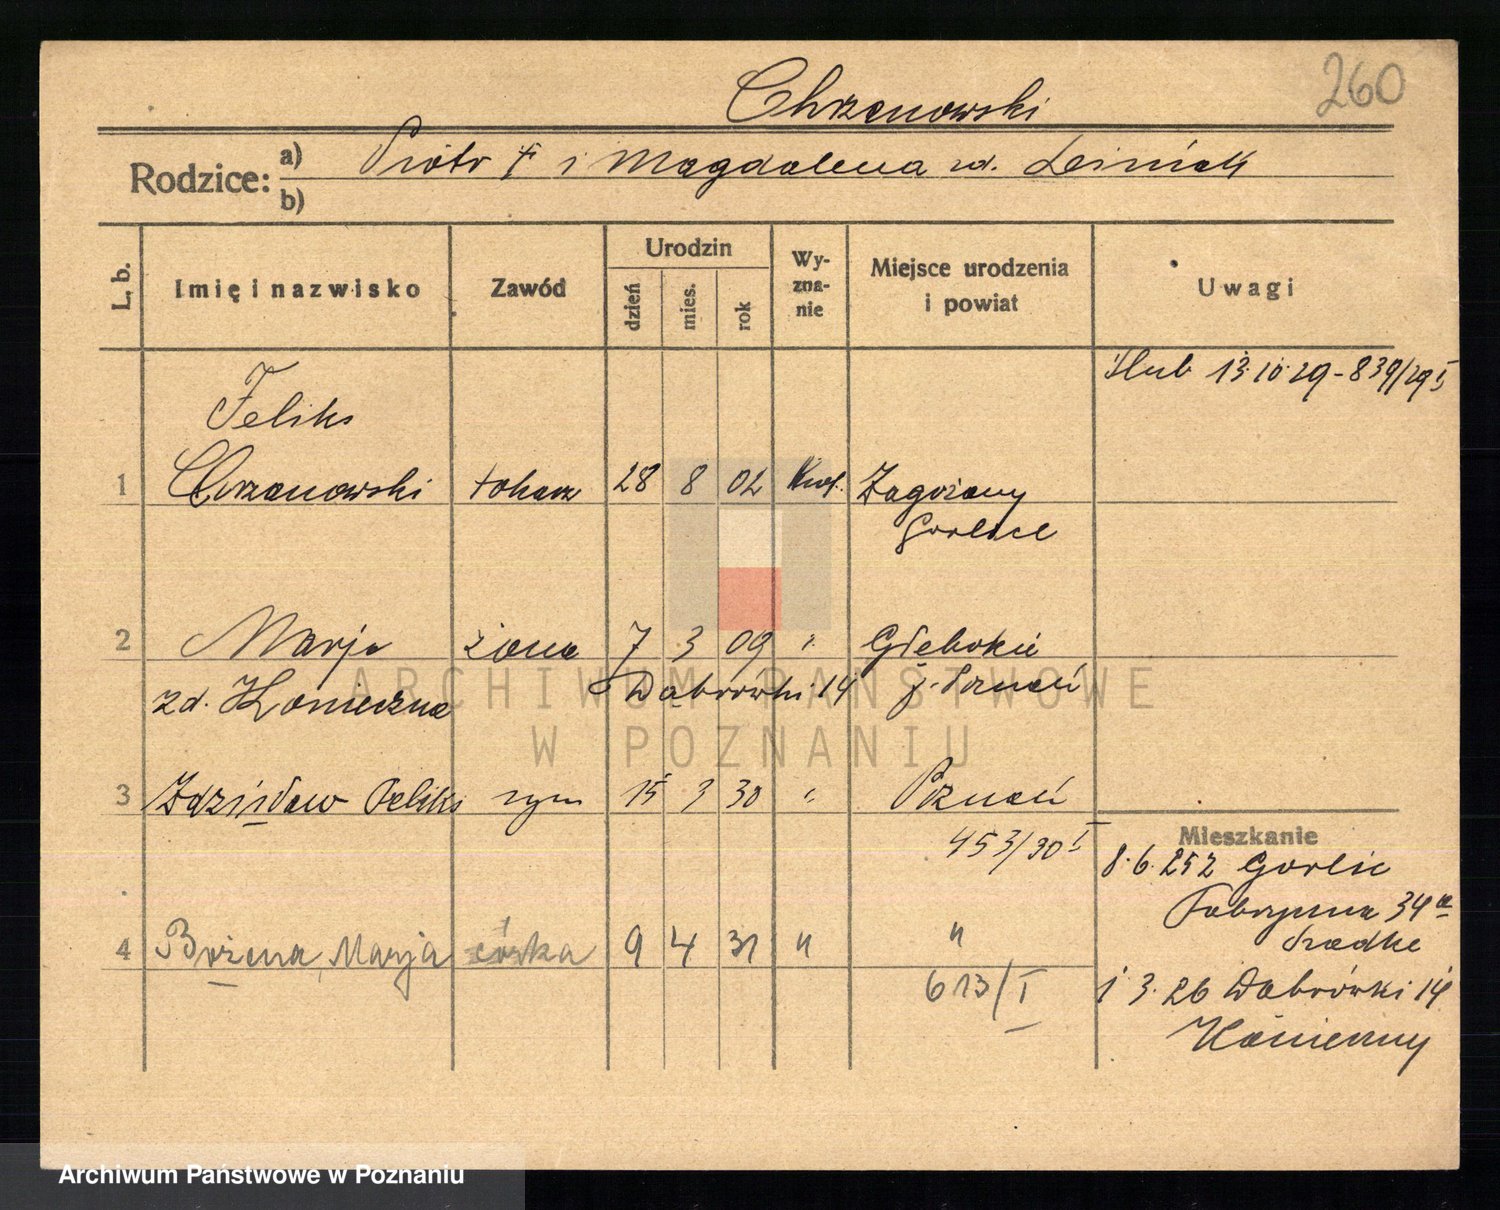 260
Chrzanowski
Rodzice: a) Piotr † i Magdalena zd. Leśniak
b)
L. b. Imię i nazwisko Zawód Urodzin dzień mies. rok Wy-zna-nie Miejsce urodzenia i powiat Uwagi
Ślub 13.10.29 - 839/29 I
Feliks
1 Chrzanowski tokarz 28 8 02 Zagórzany
Gorlice
2 Marja żona 7 3 09 " Głębokie
zd. Konieczna Dąbrówki 14 p. Poznań
3 Zdzisław Feliks syn 15 3 30 " Poznań
453/30 I
Mieszkanie
8.6.252 Gorlic
Fabryczna 34a
4 Bożena Marja córka 9 4 31 " "
613/I
1 3.26 Dąbrówki 14
Konieczny
ARCHIWUM PAŃSTWOWE
W POZNANIU
Archiwum Państwowe w Poznaniu